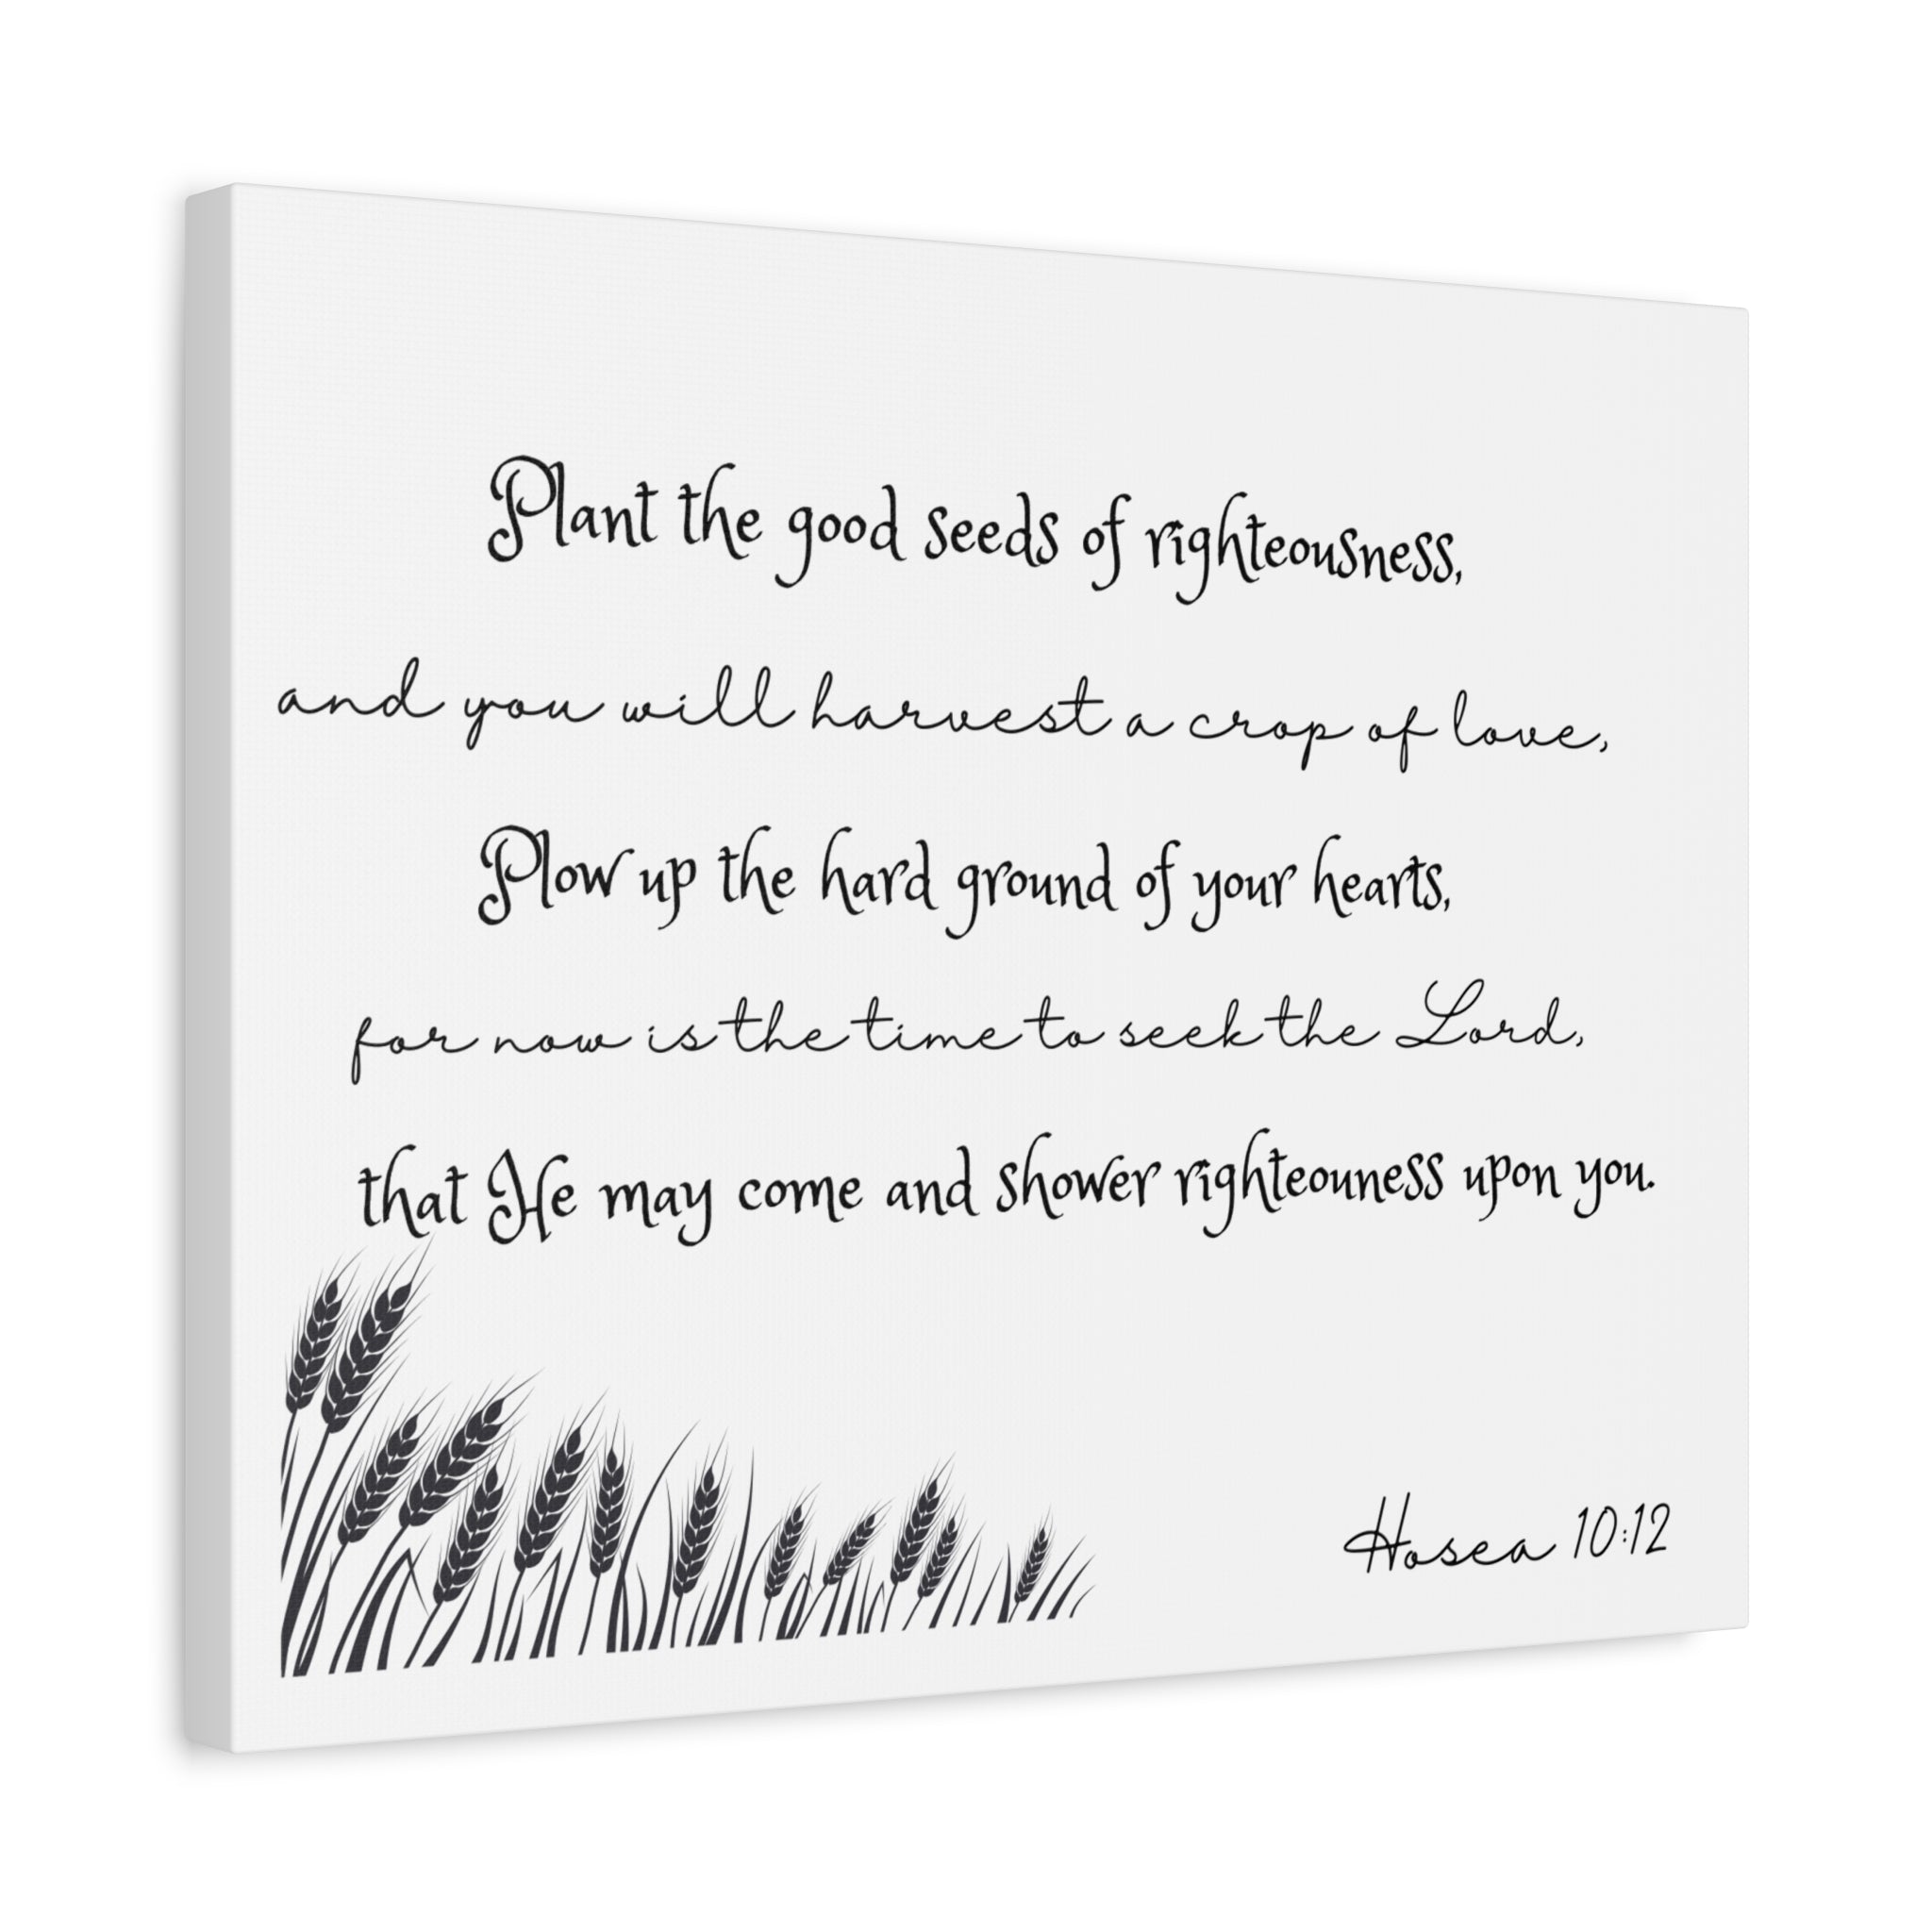 Plant the good seeds of righteousness,
and you will harvest a crop of love,
Plow up the hard ground of your hearts,
for now is the time to seek the Lord,
that He may come and shower righteouness upon you.
Hosea 10:12